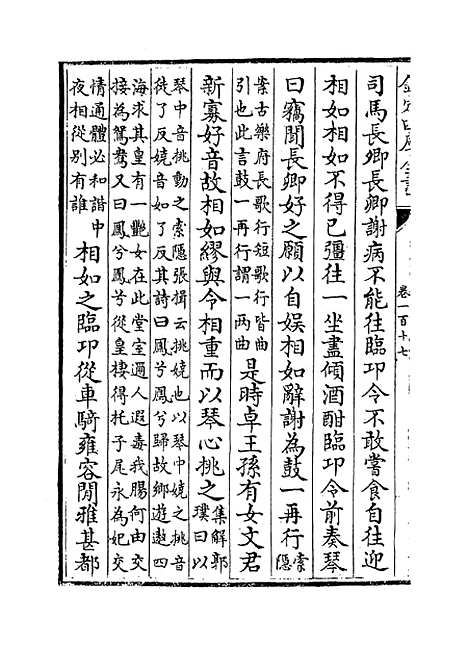 欽定四庫全書
卷一百十七
司馬長卿長卿謝病不能往臨卭令不敢嘗食自往迎
相如相如不得已彊往一坐盡傾酒酣臨卭令前奏琴
曰竊聞長卿好之願以自娱相如辭謝為鼓一再行索隱
案古樂府長歌行短歌行皆曲
引也此言鼓一再行謂一兩曲
是時卓王孫有女文君
新寡好音故相如繆與令相重而以琴心挑之集解郭
璞曰以
琴中音挑動之索隱張揖云挑嬈也以琴中嬈之挑音
徒了反嬈音如了反其詩曰鳳兮鳳兮歸故鄉遊遨四
海求其皇有一艷女在此堂室邇人遐毒我腸何由交
接為鴛鴦又曰鳳兮鳳兮從皇棲得托子尾永為妃交
情通體必和諧中
夜相從别有誰
相如之臨卭從車騎雍容閒雅甚都